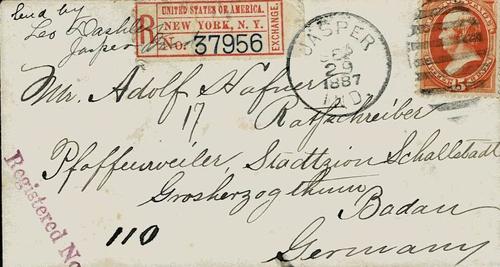 Send by
Leo Dashle
Jasper
UNITED STATES OF AMERICA.
R NEW YORK, N. Y. EXCHANGE.
No. 37956
JASPER
29
1887
IND
Mr. Adolf Hafner
17
Ratschreiber
Pfaffenweiler Stadtzion Schallstadt
Grosherzogthum
Badau
Germany
Registered No
110